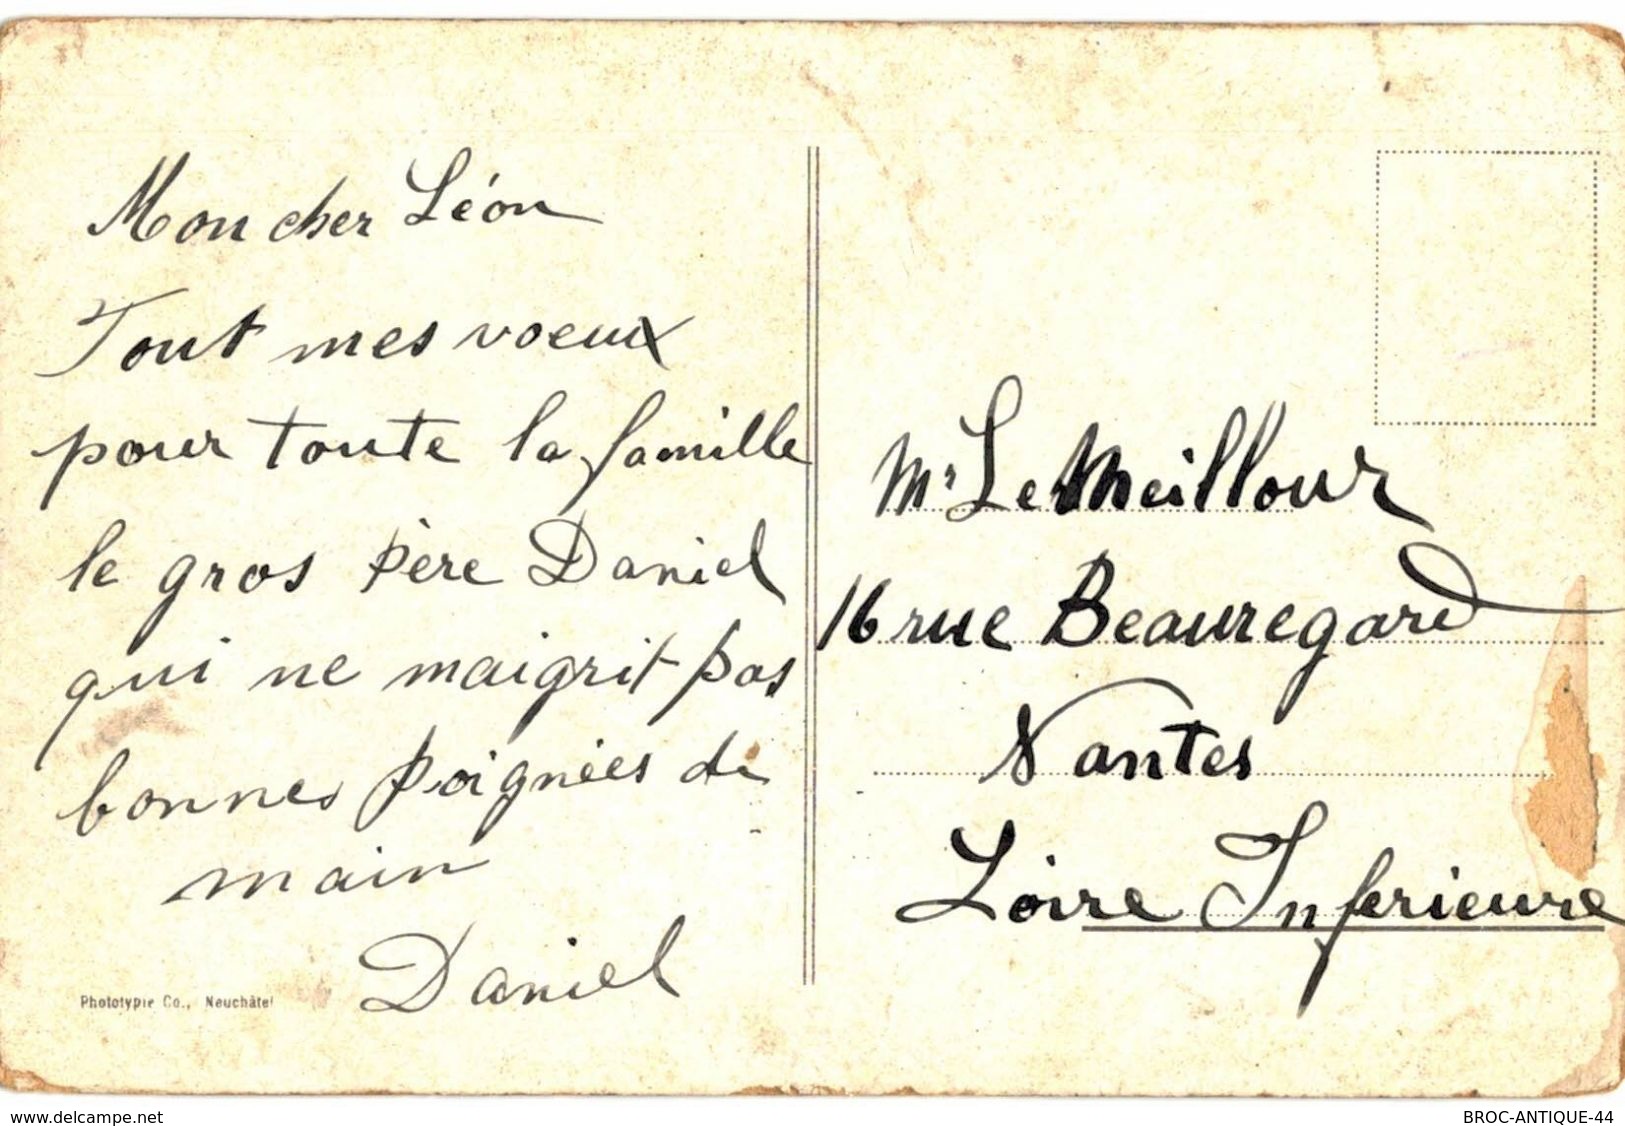 Mon cher Léon
Tout mes voeux
pour toute la famille
le gros père Daniel
qui ne maigrit pas
bonnes poignées de
main
Daniel
Phototypie Co., Neuchâtel
Mr Le Meillour
16 rue Beauregard
Nantes
Loire Inferieure
www.delcampe.net
BROC-ANTIQUE-44